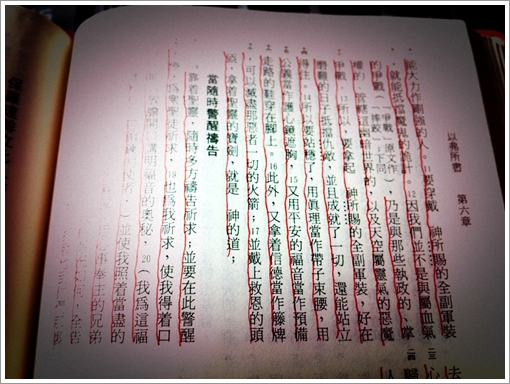 以弗所書　第六章
能大力作剛強的人。11 要穿戴　神所賜的全副軍裝
就能抵擋魔鬼的詭計。12 因我們並不是與屬血氣
的爭戰（「爭戰」原文作「摔跤」下同）乃是與那些執政的，掌
權的，管轄這幽暗世界的，以及天空屬靈氣的惡魔
爭戰。13 所以，要拿起　神所賜的全副軍裝，好在
磨難的日子抵擋仇敵，並且成就了一切，還能站立
得住。14 所以要站穩了，用真理當作帶子束腰，用
公義當作護心鏡遮胸，15 又用平安的福音當作預備
走路的鞋穿在腳上。16 此外，又拿着信德當作籐牌
，可以滅盡那惡者一切的火箭；17 並戴上救恩的頭
盔，拿着聖靈的寶劍，就是　神的道；
當隨時警醒禱告
靠着聖靈，隨時多方禱告祈求；並要在此警醒
為眾聖徒祈求，19 也為我祈求，使我得着口
講明福音的奧秘，20（我為這福
的使者，）並使我照着當盡的
事奉主的兄弟